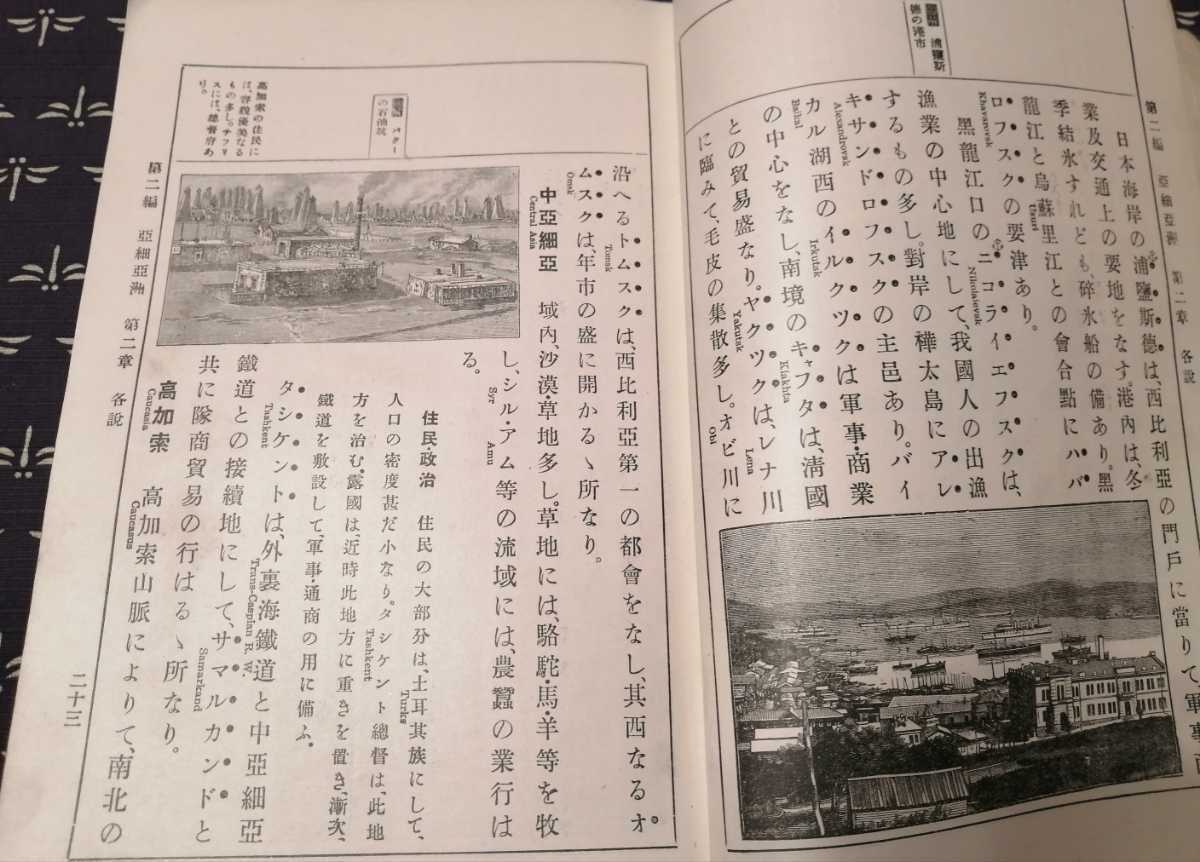 第二編 亞細亞洲 第二章 各說
浦鹽斯
德の港市
日本海岸の浦鹽斯德は、西比利亞の門戶に當りて、軍事
業及交通上の要地をなす。港內は、冬
季結氷すれども、碎氷船の備あり。黑
龍江と烏蘇里江との會合點にハバ
Usuri
ロフスクの要津あり。
Khavarovsk
黑龍江口のニコライエフスクは、
Nikolaievsk
漁業の中心地にして、我國人の出漁
するもの多し。對岸の樺太島にアレ
キサンドロフスクの主邑あり。バイ
Alexandrovsk
カル湖西のイルクツクは軍事・商業
Baikal Irkutsk
の中心をなし、南境のキャフタは、淸國
Kiakhta
との貿易盛なり。ヤクツクは、レナ川
Yakutsk Lena
に臨みて、毛皮の集散多し。オビ川に
Obi
沿へるトムスクは、西比利亞第一の都會をなし、其西なるオ
Tomsk
ムスクは、年市の盛に開かるゝ所なり。
Omsk
中亞細亞 域內、沙漠・草地多し。草地には、駱駝・馬・羊等を牧
Central Asia
し、シル・アム等の流域には、農蠶の業行は
Syr Amu
る。
住民・政治 住民の大部分は、土耳其族にして、
Turks
人口の密度甚だ小なり。タシケント總督は、此地
Tashkent
方を治む。露國は、近時此地方に重きを置き、漸次、
鐵道を敷設して、軍事・通商の用に備ふ。
タシケントは、外裏海鐵道と中亞細亞
Tashkent Trans-Caspian R. W.
鐵道との接續地にして、サマルカンドと
Samarkand
共に隊商貿易の行はるゝ所なり。
高加索 高加索山脈によりて、南北の
Caucasia Caucasus
バクー
の石油坑
高加索の住民に
は、容貌優美なる
もの多し。チフリ
スには、總督府あ
り。
第二編 亞細亞洲 第二章 各說
二十三